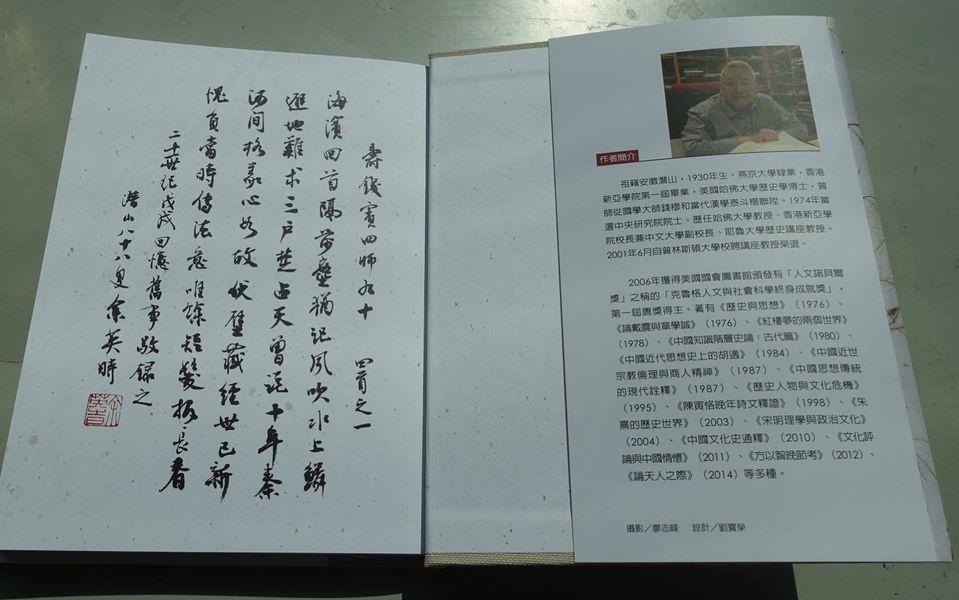 壽錢賓四師九十 四首之一
海濱回首隔前塵猶記風吹水上鱗
避地難求三戶楚占天曾說十年秦
河間格義心如故伏壁藏經世已新
愧負當時傳法意唯餘短髮報長春
二十世紀戊戌回憶舊事敬錄之
潛山八十八叟余英時
作者簡介
祖籍安徽潛山，1930年生。燕京大學肄業，香港
新亞學院第一屆畢業，美國哈佛大學歷史學博士，曾
師從國學大師錢穆和當代漢學泰斗楊聯陞。1974年當
選中央研究院院士。歷任哈佛大學教授、香港新亞學
院校長兼中文大學副校長、耶魯大學歷史講座教授。
2001年6月自普林斯頓大學校聘講座教授榮退。
2006年獲得美國國會圖書館頒發有「人文諾貝爾
獎」之稱的「克魯格人文與社會科學終身成就獎」，
第一屆唐獎得主。著有《歷史與思想》（1976）、
《論戴震與章學誠》（1976）、《紅樓夢的兩個世界》
（1978）、《中國知識階層史論：古代篇》（1980）
《中國近代思想史上的胡適》（1984）、《中國近世
宗教倫理與商人精神》（1987）、《中國思想傳統
的現代詮釋》（1987）、《歷史人物與文化危機》
（1995）、《陳寅恪晚年詩文釋證》（1998）、《朱
熹的歷史世界》（2003）、《宋明理學與政治文化》
（2004）、《中國文化史通釋》（2010）、《文化評
論與中國情懷》（2011）、《方以智晚節考》（2012）、
《論天人之際》（2014）等多種。
攝影／廖志峰 設計／劉寶榮